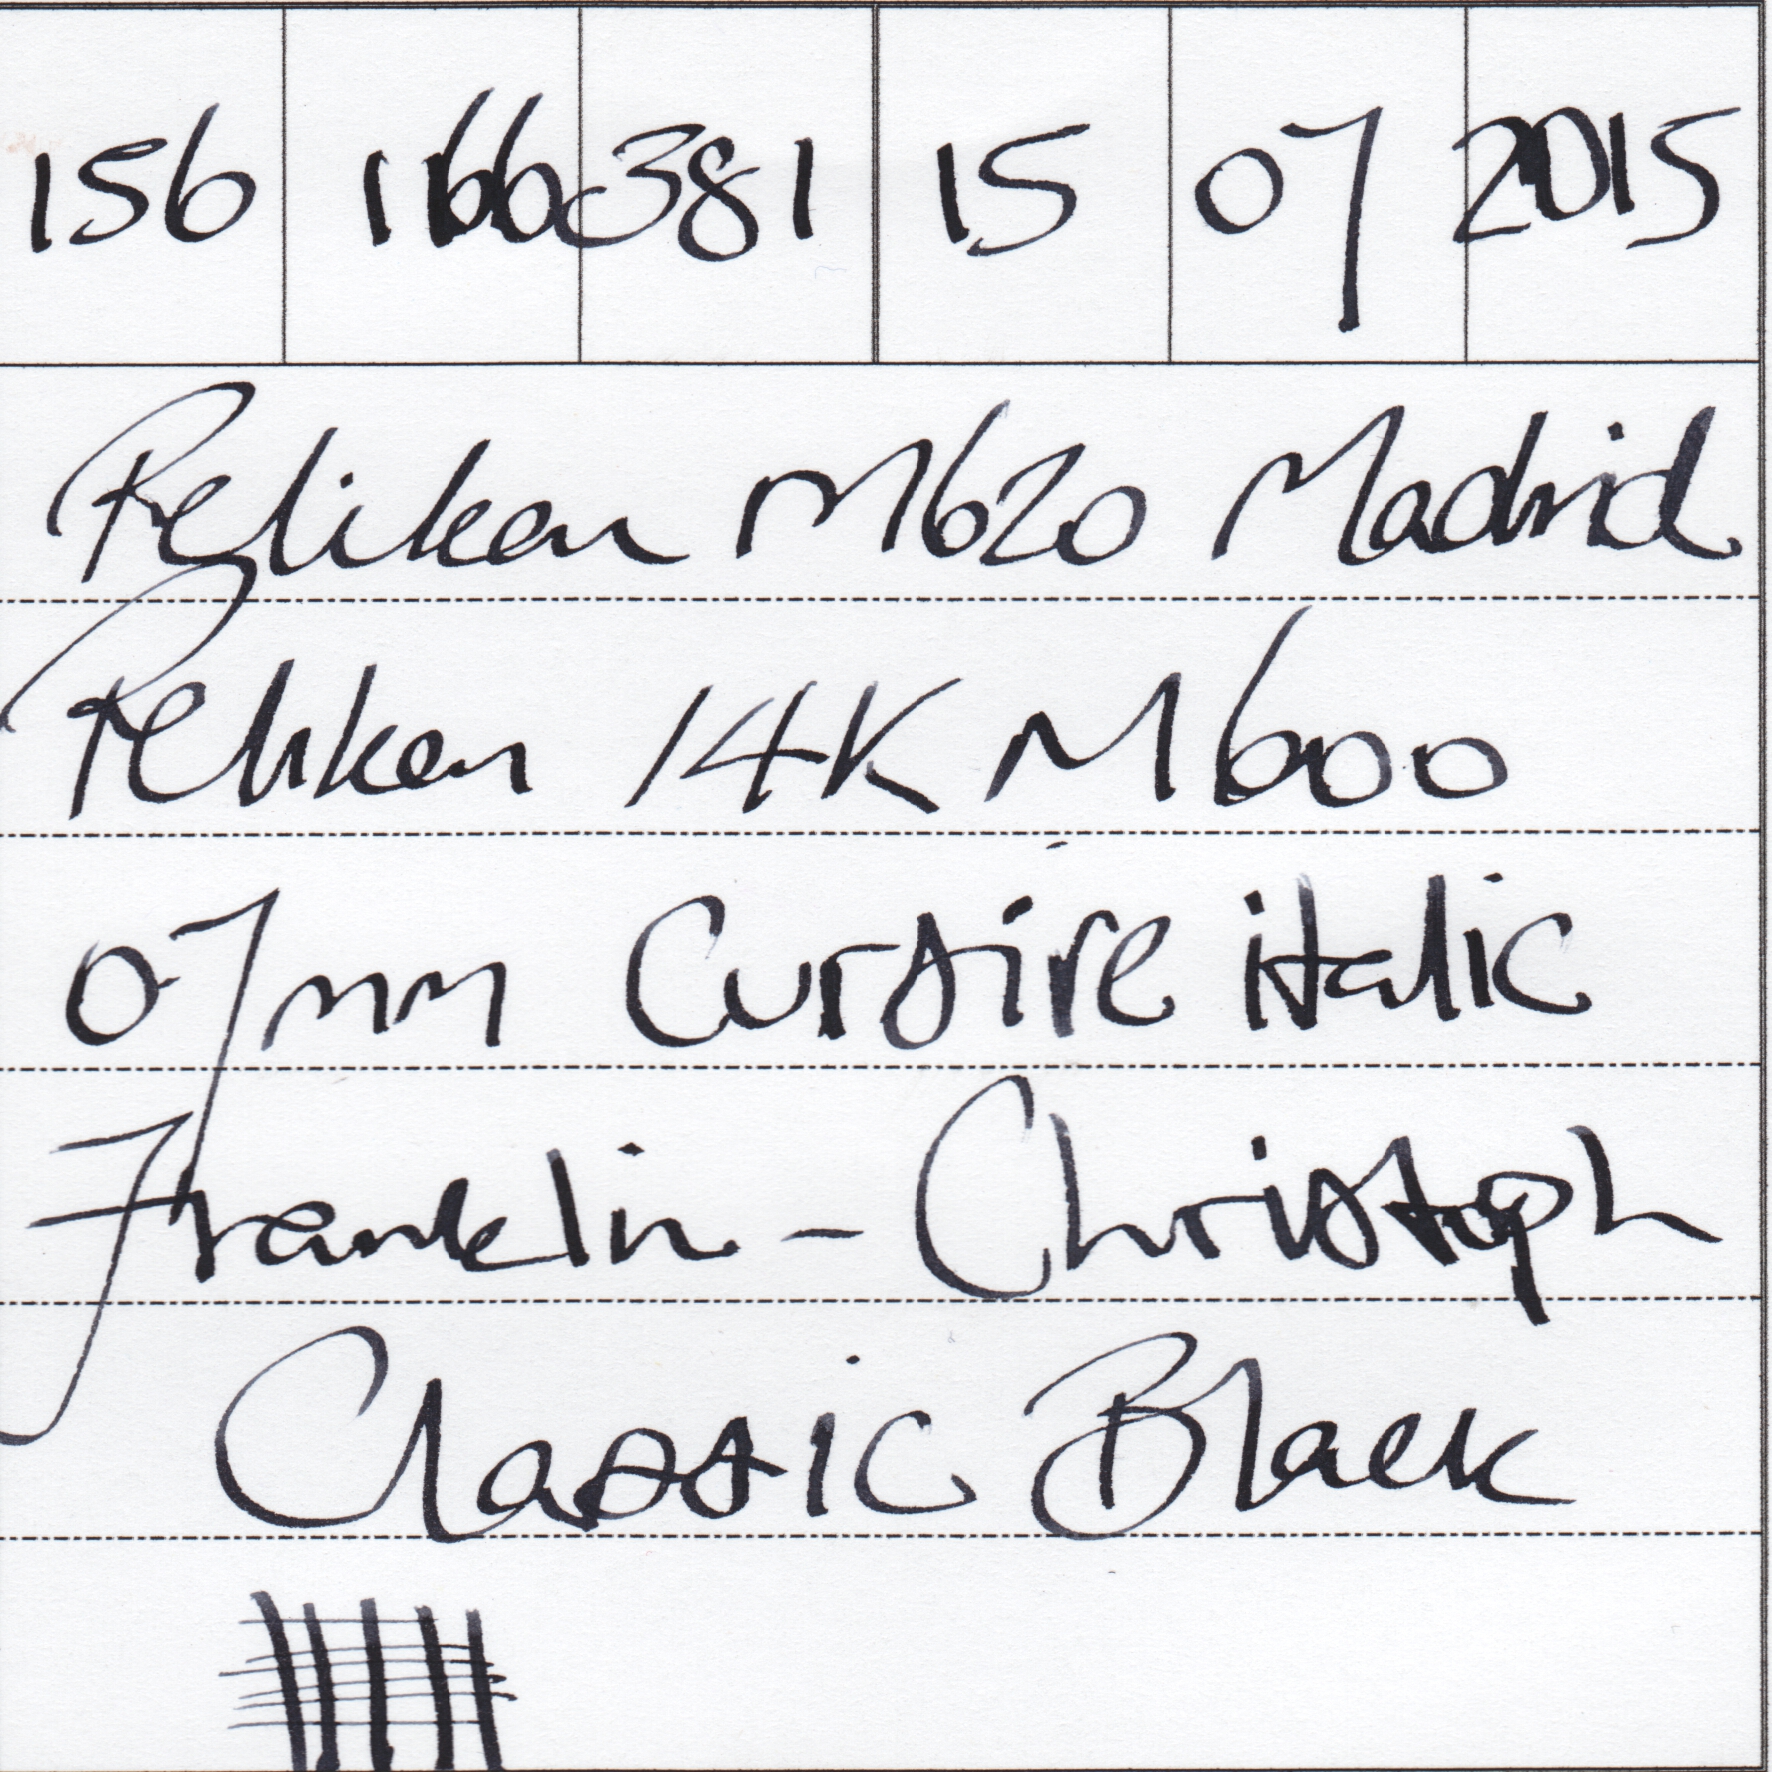 156 166 381 15 07 2015
Pelikan M620 Madrid
Pelikan 14K M600
07mm Cursive italic
Franklin - Christoph
Classic Black